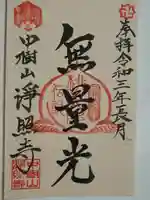 奉拝 令和三年長月
無量光
中樹山 浄照寺